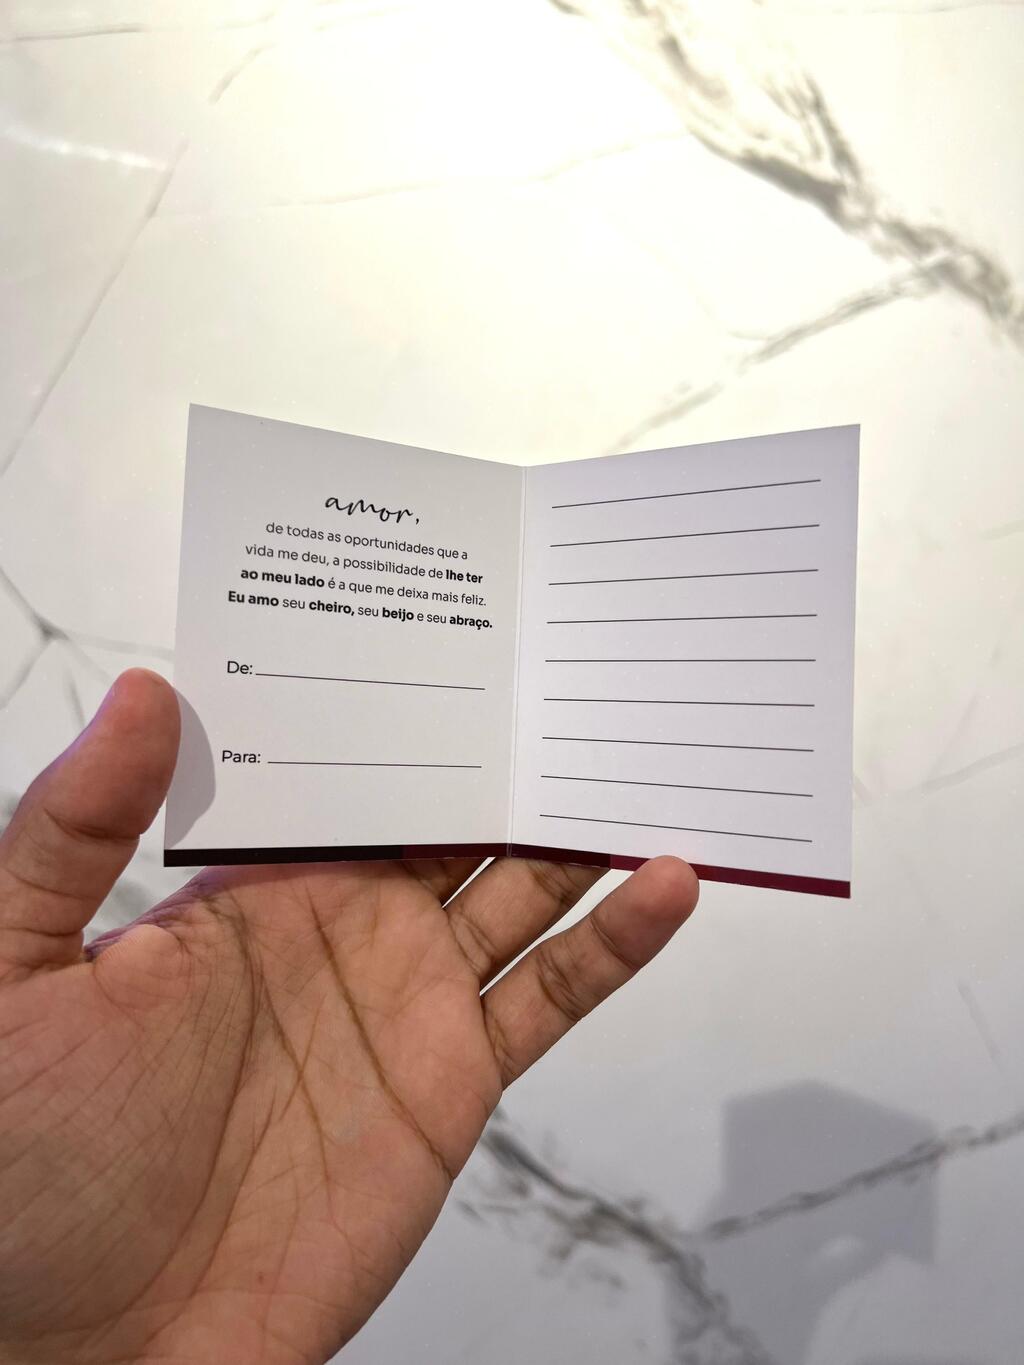 amor,
de todas as oportunidades que a
vida me deu, a possibilidade de lhe ter
ao meu lado é a que me deixa mais feliz.
Eu amo seu cheiro, seu beijo e seu abraço.
De:
Para: